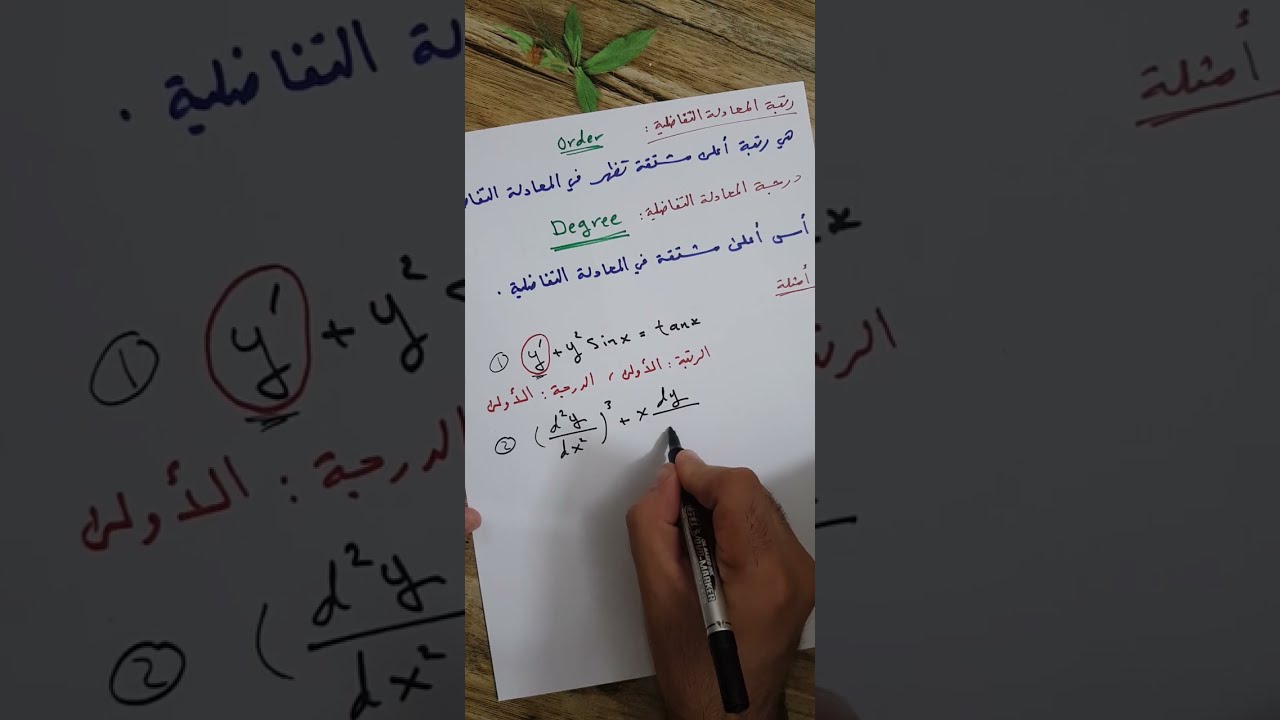 رتبة المعادلة التفاضلية : Order
هي رتبة أعلى مشتقة تظهر في المعادلة
درجة المعادلة التفاضلية : Degree
أسس أعلى مشتقة في المعادلة التفاضلية .
أمثلة
① y' + y² sin x = tan x
الرتبة : الأولى ، الدرجة : الأولى
② (d²y/dx²)³ + x dy
MARKER